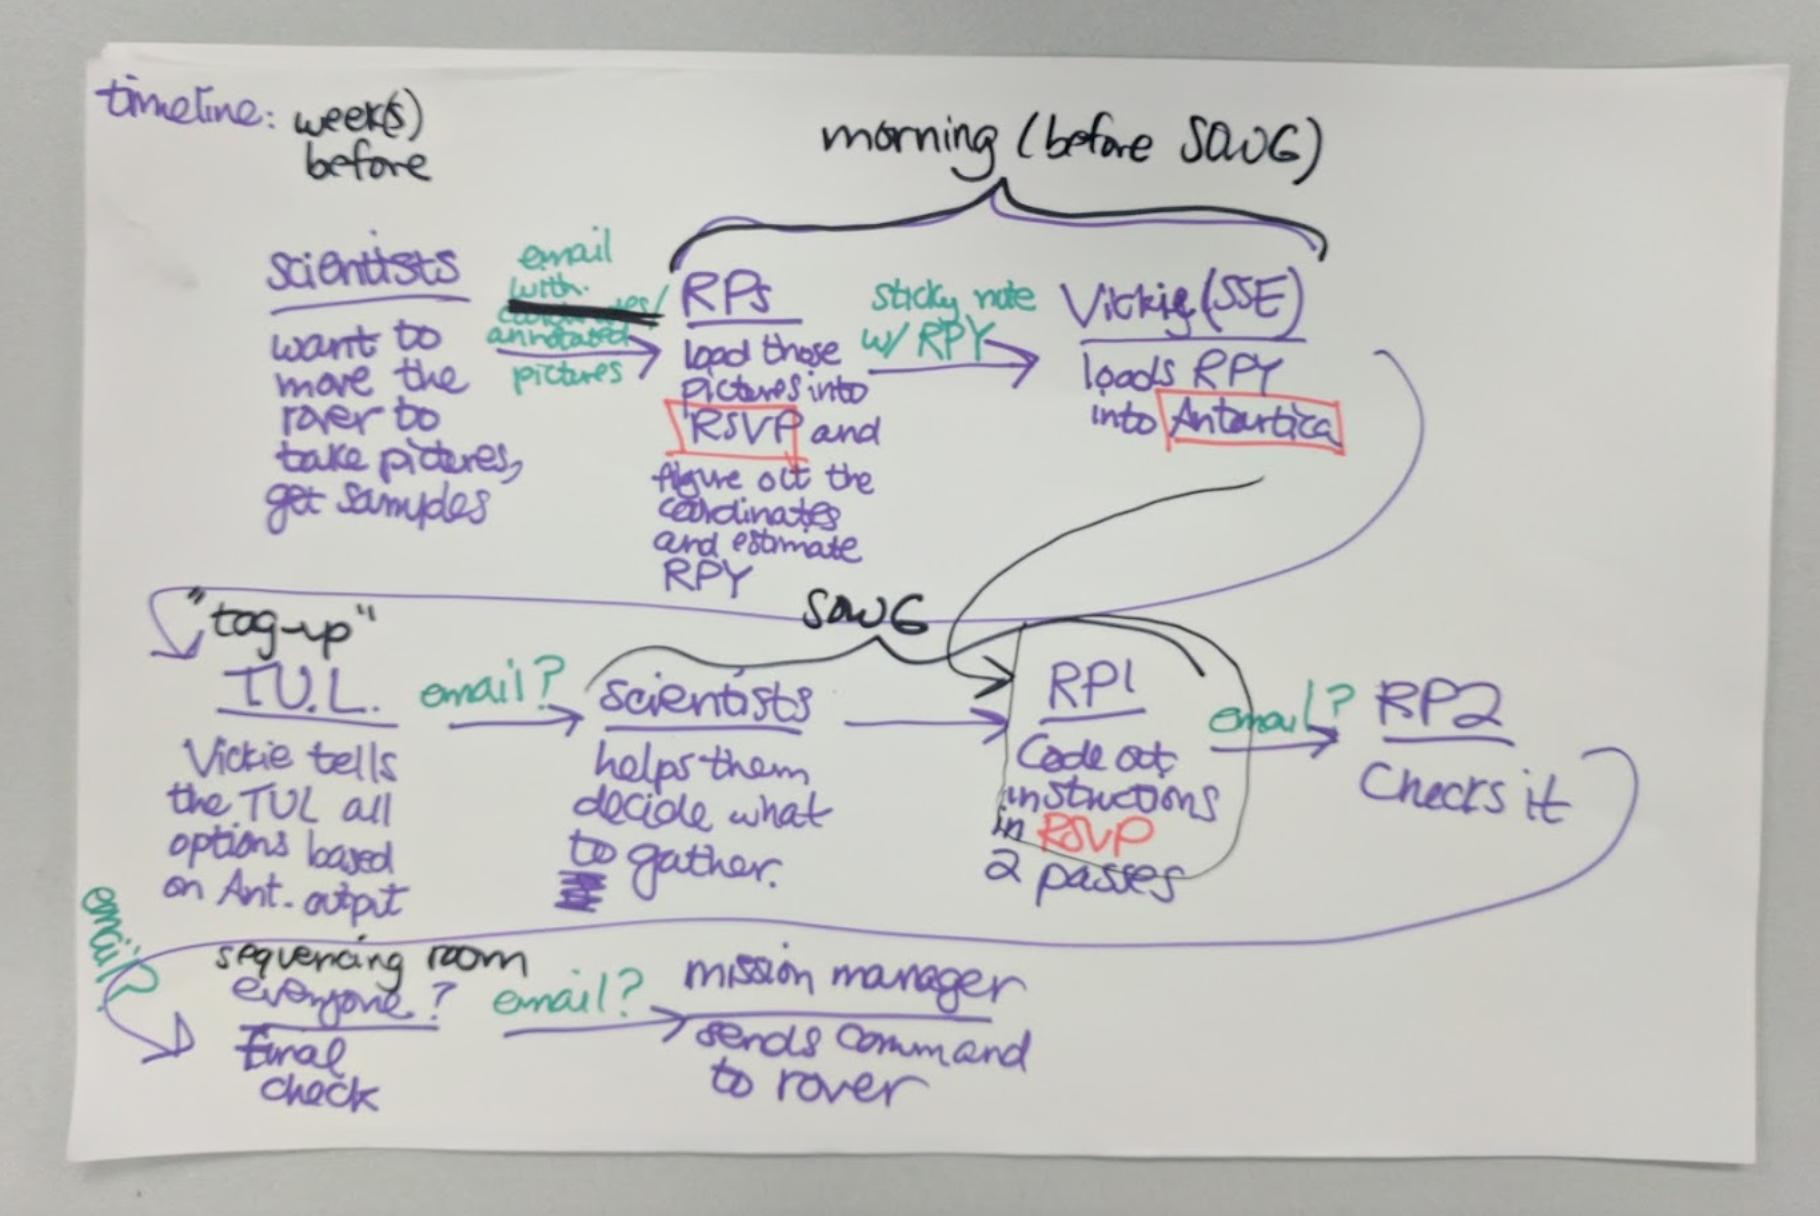 timeline: week(s)
before
morning (before SOWG)
scientists
want to
move the
rover to
take pictures,
get samples
email
with
annotated
pictures
RPs
load those
pictures into
RSVP and
figure out the
coordinates
and estimate
RPY
sticky note
w/ RPY
Vickie (SSE)
loads RPY
into Antartica
"tag-up"
T.U.L.
Vickie tells
the TUL all
options based
on Ant. output
email?
SOWG
scientists
helps them
decide what
to gather.
RP1
Code out
instructions
in RSVP
2 passes
email?
RP2
Checks it
email?
sequencing room
everyone?
final
check
email?
mission manager
sends command
to rover